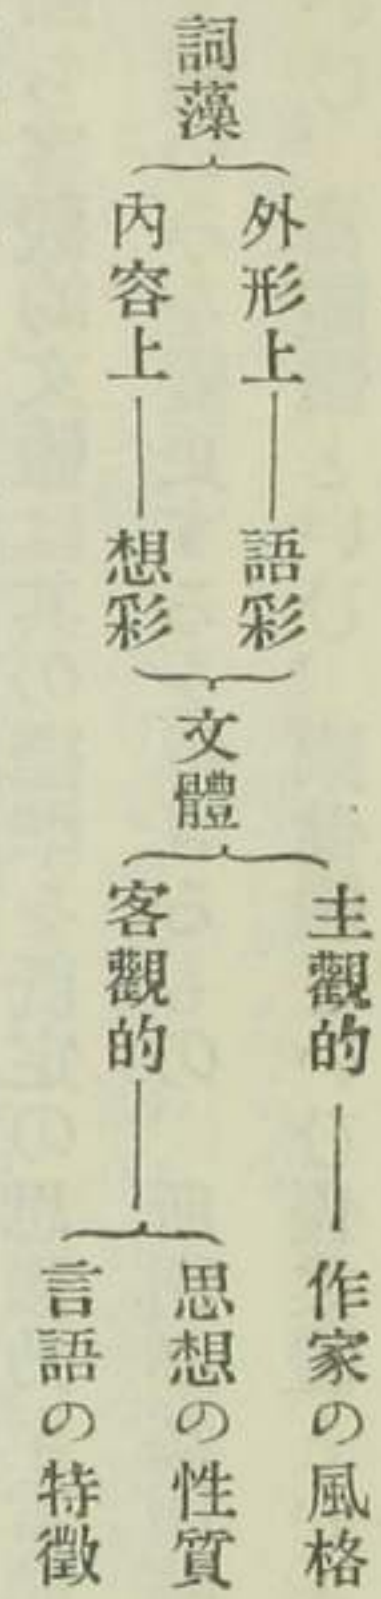 詞藻
外形上――語彩
內容上――想彩
文體
主觀的――作家の風格
客觀的――
思想の性質
言語の特徵